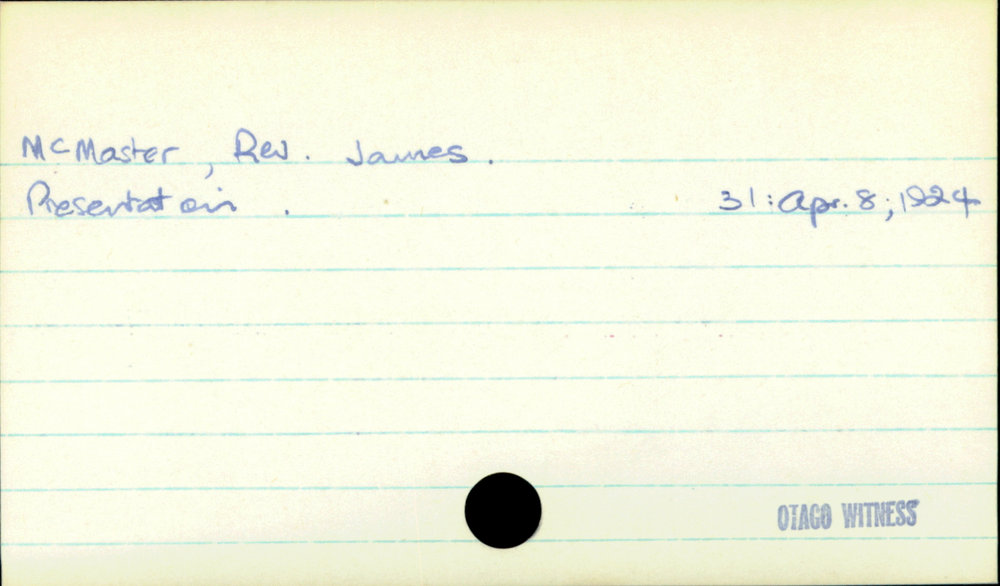 McMaster, Rev. James.
Presentation. 31: Apr. 8; 1924
OTAGO WITNESS